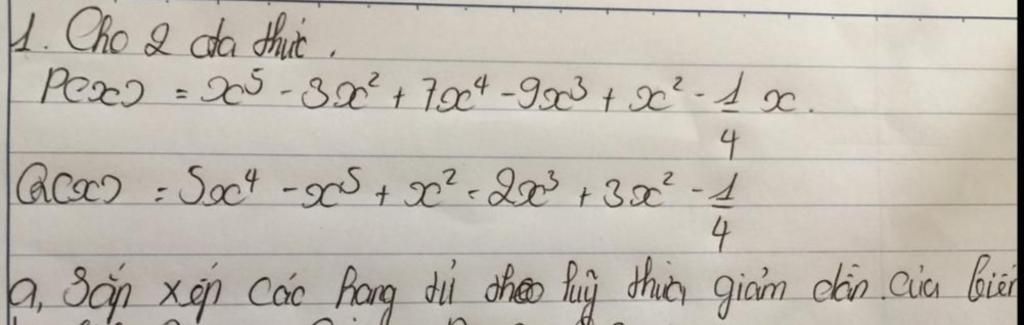 1. Cho 2 đa thức.
P(x) = x⁵ - 3x² + 7x⁴ - 9x³ + x² - 1/4 x.
Q(x) = 5x⁴ - x⁵ + x² - 2x³ + 3x² - 1/4
a, Sắp xếp các hạng tử theo luỹ thừa giảm dần của biến